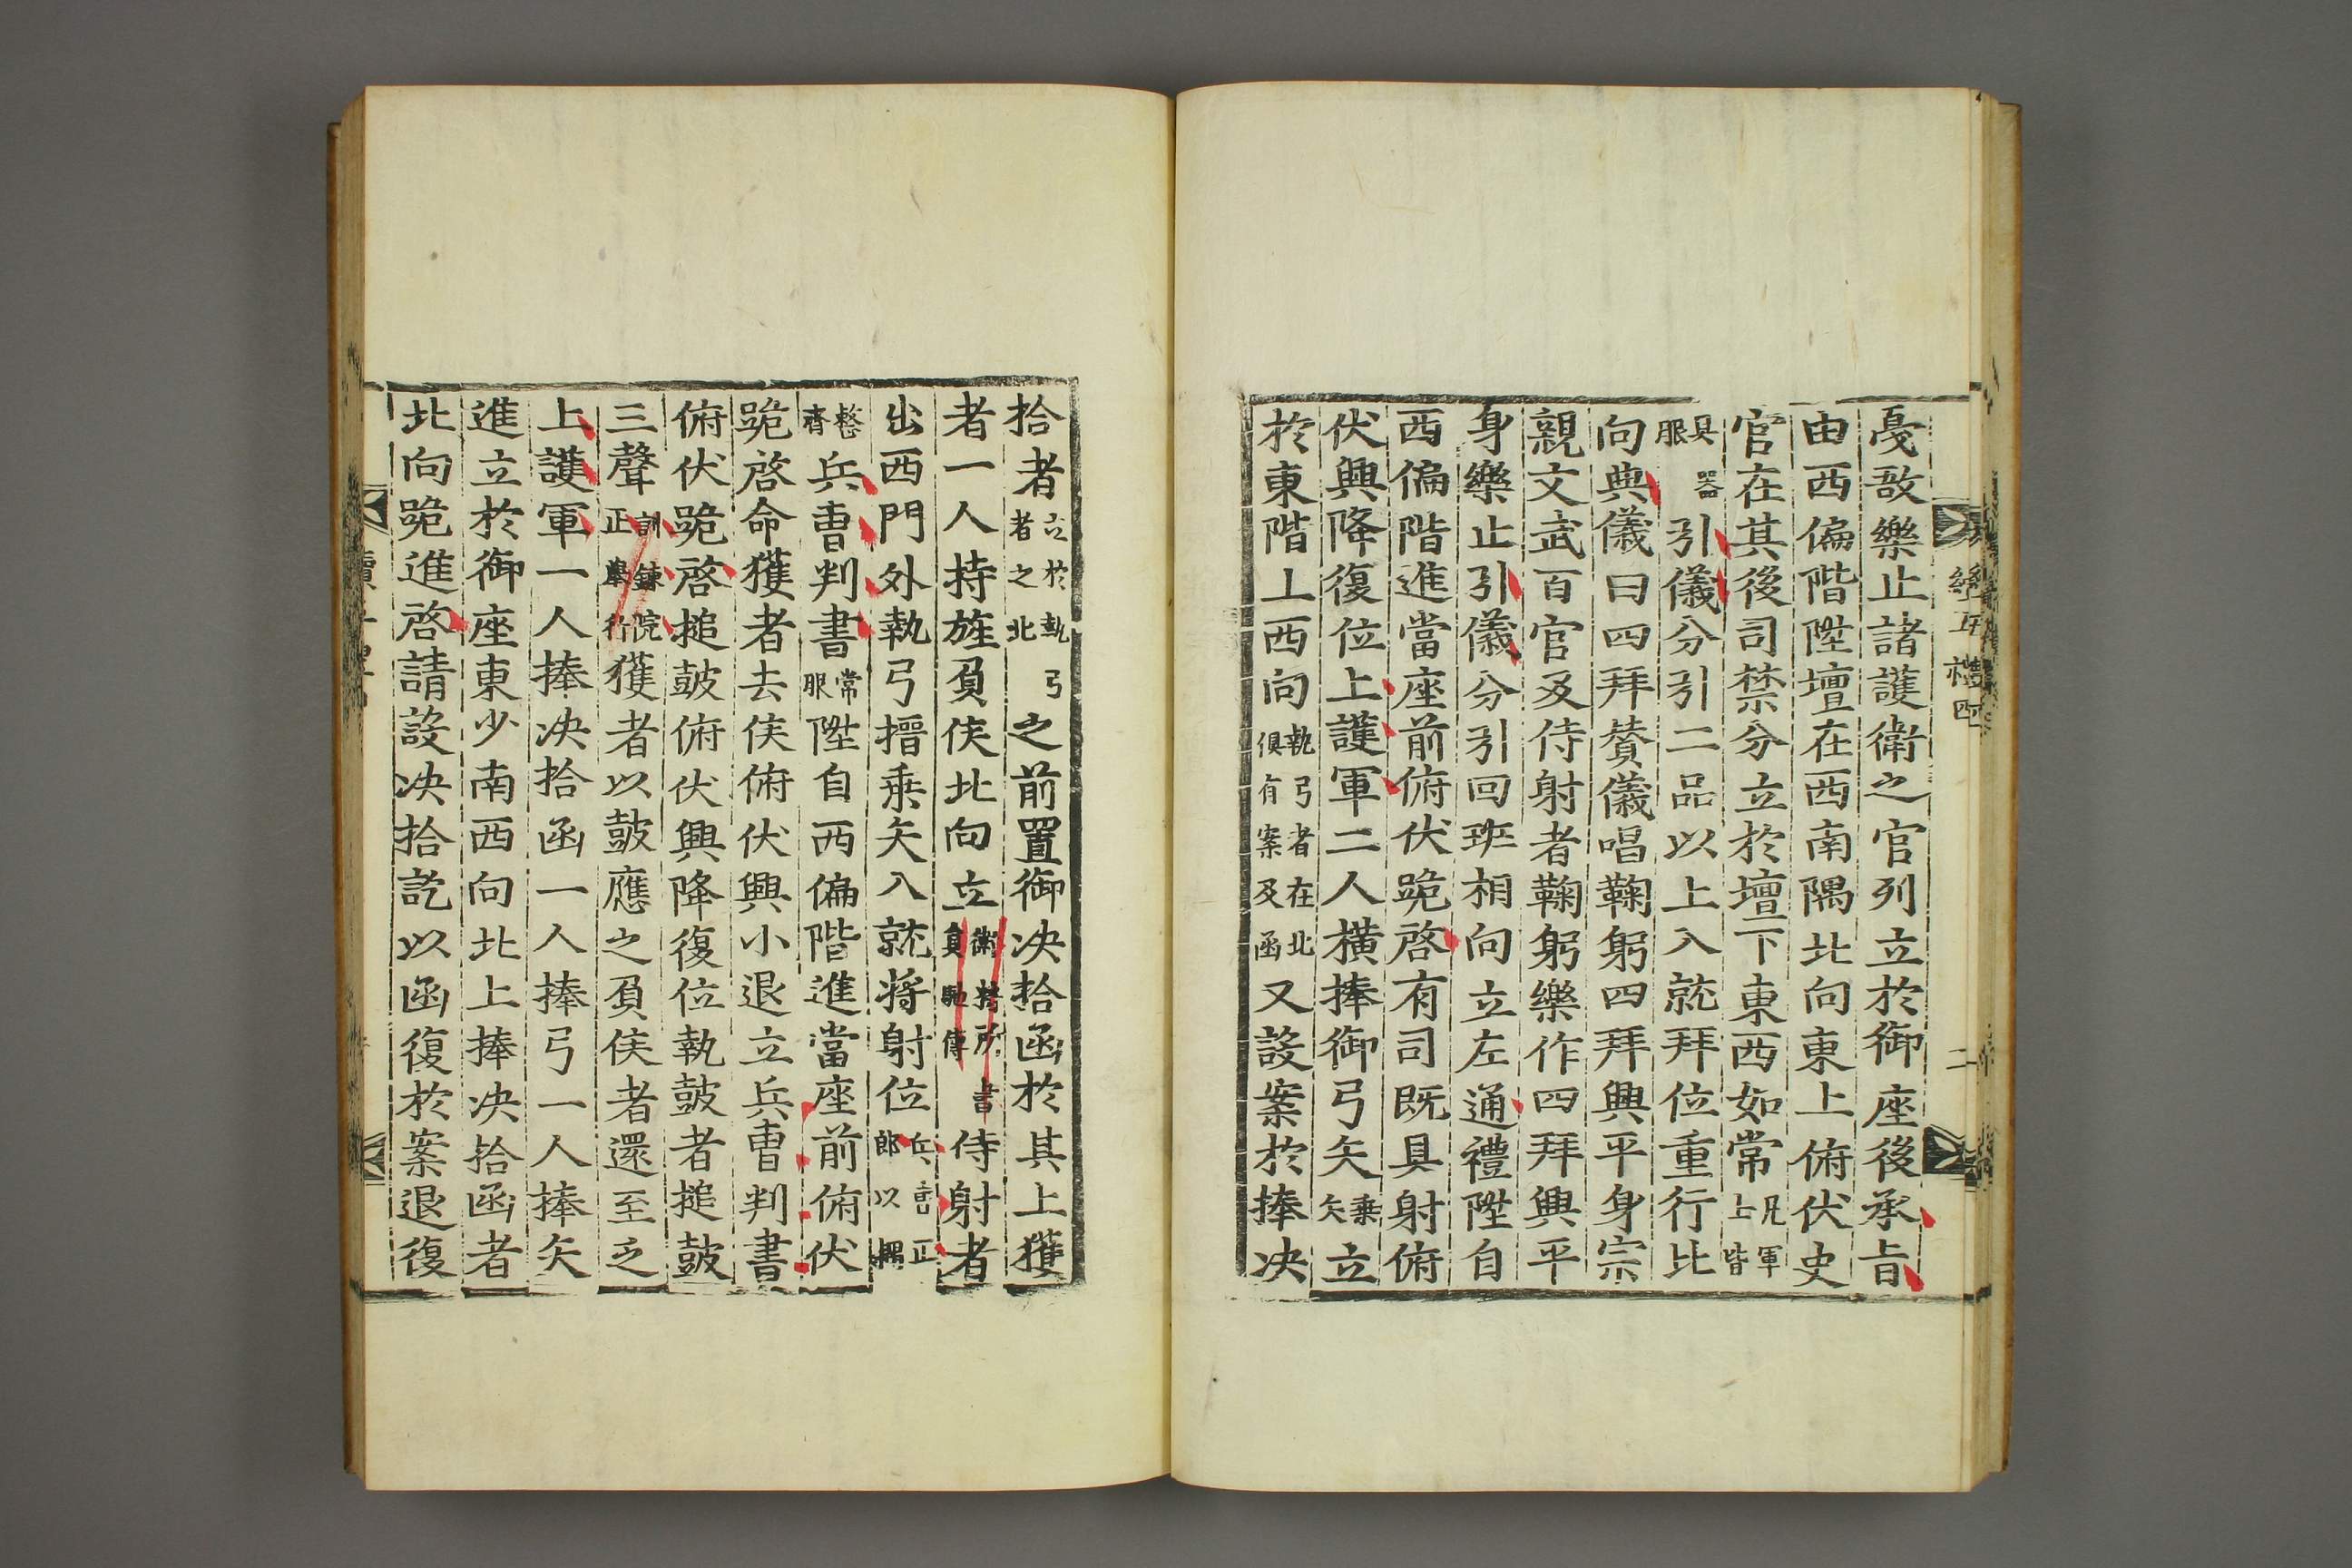 戞敔樂止諸護衛之官列立於御座後承旨
由西偏階陞壇在西南隅北向東上俯伏史
官在其後司禁分立於壇下東西如常凡軍上皆
具器服引儀分引二品以上入就拜位重行北
向典儀曰四拜贊儀唱鞠躬四拜興平身宗
親文武百官及侍射者鞠躬樂作四拜興平
身樂止引儀分引回班相向立左通禮陞自
西偏階進當座前俯伏跪啓有司旣具射俯
伏興降復位上護軍二人橫捧御弓矢乗矢立
於東階上西向執弓者在北俱有案及函又設案於捧决
拾者立於執弓者之北之前置御决拾函於其上獲
者一人持旌負侯北向立侍射者
出西門外執弓搢乗矢入就將射位
整齊兵曹判書常服陞自西偏階進當座前俯伏
跪啓命獲者去侯俯伏興小退立兵曹判書
俯伏跪啓搥鼓俯伏興降復位執鼓者搥鼓
三聲訓鍊院正擧行獲者以鼓應之負侯者還至乏
上護軍一人捧决拾函一人捧弓一人捧矢
進立於御座東少南西向北上捧决拾函者
北向跪進啓請設决拾訖以函復於案退復
二